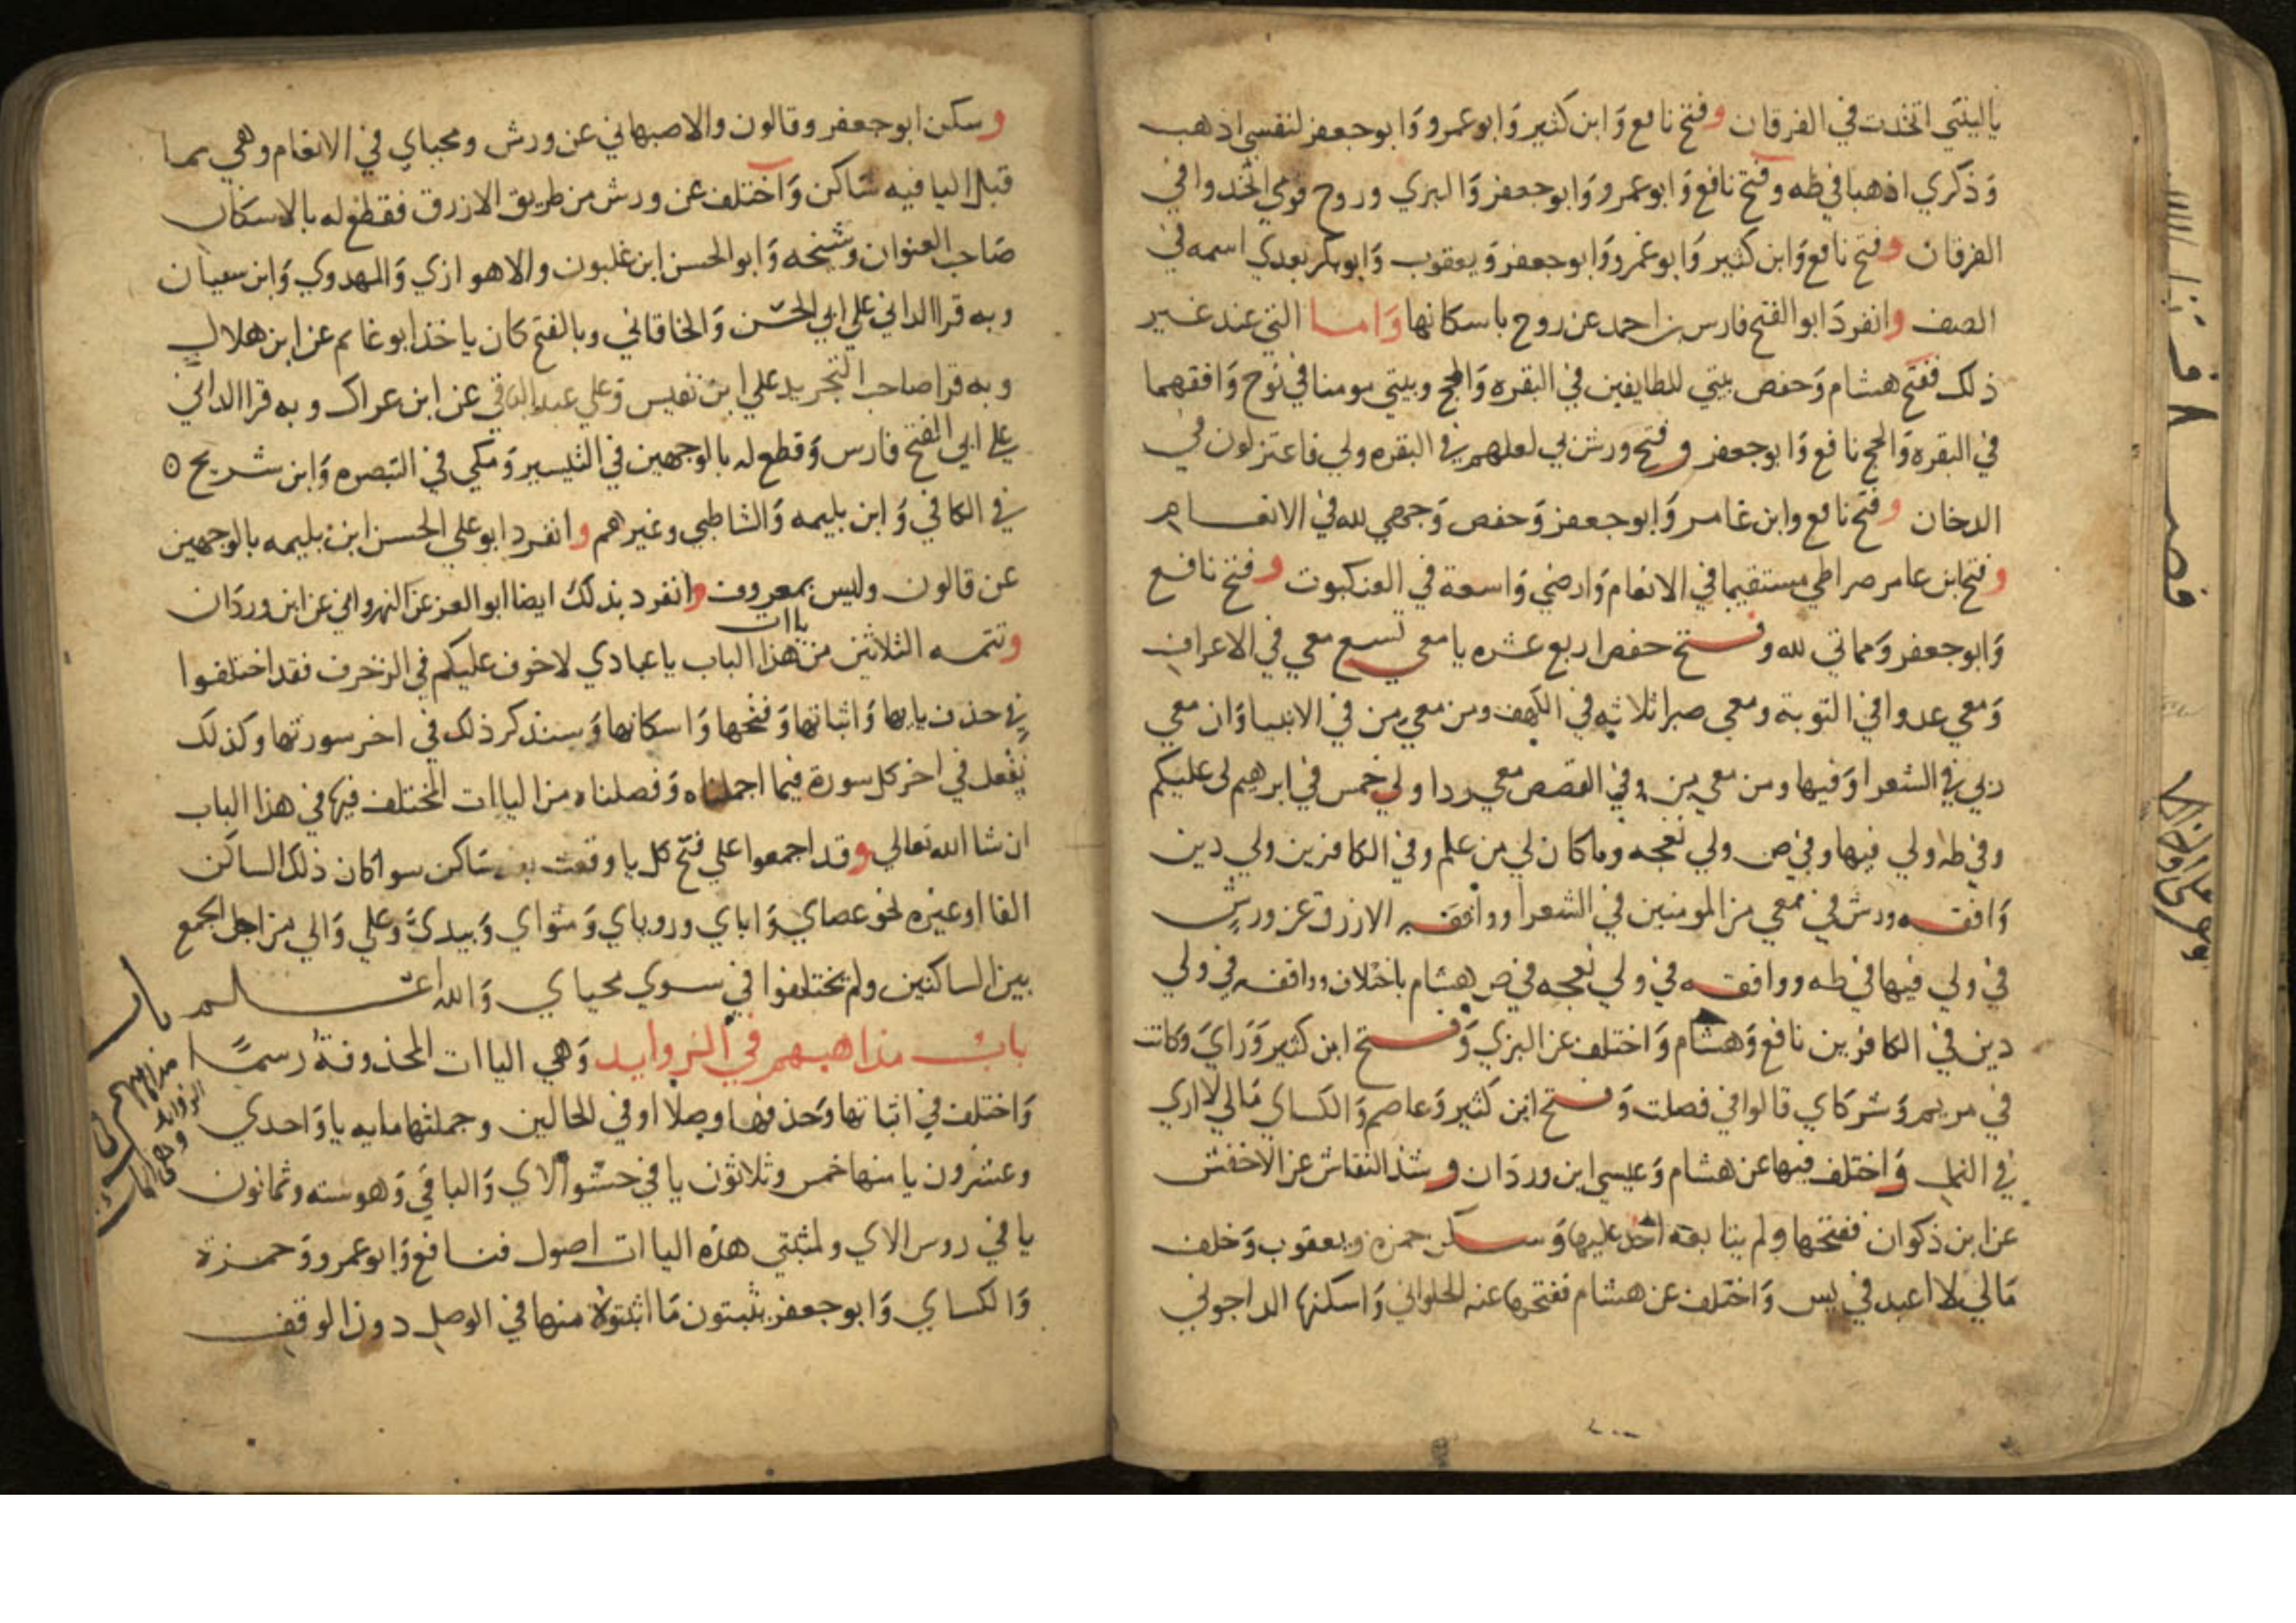 ياليتني اتخذت في الفرقان وفتح نافع وَابن كثير وَابو عمرو وَابو جعفر لنفسي اذهب
وَذكري اذهبا في طه وفتح نافع وَابو عمرو وَابو جعفر وَالبزي وروح قومي اتخذوا في
الفرقان وفتح نافع وَابن كثير وَابو عمرو وَابو جعفر وَيعقوب وَابو بكر بعدي اسمه في
الصف وانفردَ ابو الفتح فارس بن احمد عن روح باسكانها وَاما التي عند غير
ذلك ففتح هشام وَحفص بيتي للطايفين في البقره وَالحج وبيتي مومنا في نوح وَافقهما
في البقره وَالحج نافع وَابو جعفر وفتح ورش بي لعلهم في البقره ولي فاعتزلون في
الدخان وفتح نافع وابن عامر وَابو جعفر وَحفص وَجهي لله في الانعام
وفتح ابن عامر صراطي مستقيما في الانعام وَارضي وَاسعة في العنكبوت وفتح نافع
وَابو جعفر وَمماتي لله وفتح حفص اربع عشره يا معي تسع معي في الاعراف
وَمعي عدوا في التوبة ومعي صبرا ثلاثه في الكهف ومن معي من في الانبيا وَان معي
ربي في الشعرا وَفيها ومن معي من وفي القصص معي ردا ولي خمس في ابرهيم لي عليكم
وفي طه ولي فيها وفي ص ولي نعجه وما كان لي من علم وفي الكافرين ولي دين
وَافقه ورش في معي من المومنين في الشعرا ووافقه الازرق عن ورش
في ولي فيها في طه ووافقه في ولي نعجه في ص هشام باختلاف ووافقه في ولي
دين في الكافرين نافع وَهشام وَاختلف عن البزي وَفتح ابن كثير وَرَاي وَكانت
في مريم وَشركاي قالوا في فصلت وَفتح ابن كثير وَعاصم وَالكساي مَالي لا اري
في النمل وَاختلف فيها عن هشام وَعيسي ابن وردَان وشذ النقاش عن الاخفش
عن ابن ذكوان ففتحها ولم يتابعه احد عليها وَسكن حمزه ويعقوب وَخلف
مَالي لا اعبد في يس وَاختلف عن هشام ففتحها عنه الحلواني وَاسكنها الداجوني
وسكن ابو جعفر وقالون والاصبهاني عن ورش ومحياي في الانعام وهي مما
قبل اليا فيه سَاكن وَاختلف عن ورش من طريق الازرق فقطع له بالاسكان
صَاحب العنوان وشيخه وَابو الحسن ابن غلبون والاهوازي وَالمهدوي وَابن سفيان
وبه قرا الداني علي ابي الحسن وَالخاقاني وبالفتح كان ياخذ ابو غانم عن ابن هلال
وبه قرا صاحب التجريد علي ابن نفيس وَعلي عبد الباقي عن ابن عراك وبه قرا الداني
علي ابي الفتح فارس وَقطع له بالوجهين في التيسير وَمكي في التبصره وَابن شريح ه
في الكافي وَابن بليمه وَالشاطبي وغيرهم وانفرد ابو علي الحسن ابن بليمه بالوجهين
عن قالون وليس بمعروف وانفرد بذلك ايضا ابو العز عن النهرواني عن ابن وردَان
وتتمه الثلاثين من ياات هذا الباب ياعبادي لاخوف عليكم في الزخرف فقد اختلفوا
في حذف يايها وَاثباتها وَفتحها وَاسكانها وَسنذكر ذلك في اخر سورتها وكذلك
نفعل في اخر كل سورة فيما اجملناه وَفصلناه من الياات المختلف فيها في هذا الباب
ان شا الله تعالي وقد اجمعوا علي فتح كل يا وقعت بعد ساكن سوا كان ذلك الساكن
الفا او غيره نحو عصاي وَاياي ورويَاي وَمثواي وَبيديَّ وَعلي وَالي من اجل الجمع
بين الساكنين ولم يختلفوا في سوي محياي وَالله اعلم
بابُ مذاهبهم في الزوايد وَهي الياات المحذوفةُ رسمًا
وَاختلف في اثباتها وَحذفها وصلا او في الحالين وجملتها مايه يا وَاحدي
وعشرون يا منها خمس وثلاثون يا في حشو الاي وَالباقي وَهو سته وثمانون
يا في روس الاي ولمثبتي هذه الياات اصول فنافع وَابو عمرو وَحمزة
وَالكساي وَابو جعفر يثبتون مَا اثبتوه منها في الوصل دون الوقف
باب
مذاهبهم في
الزوايد
وهي